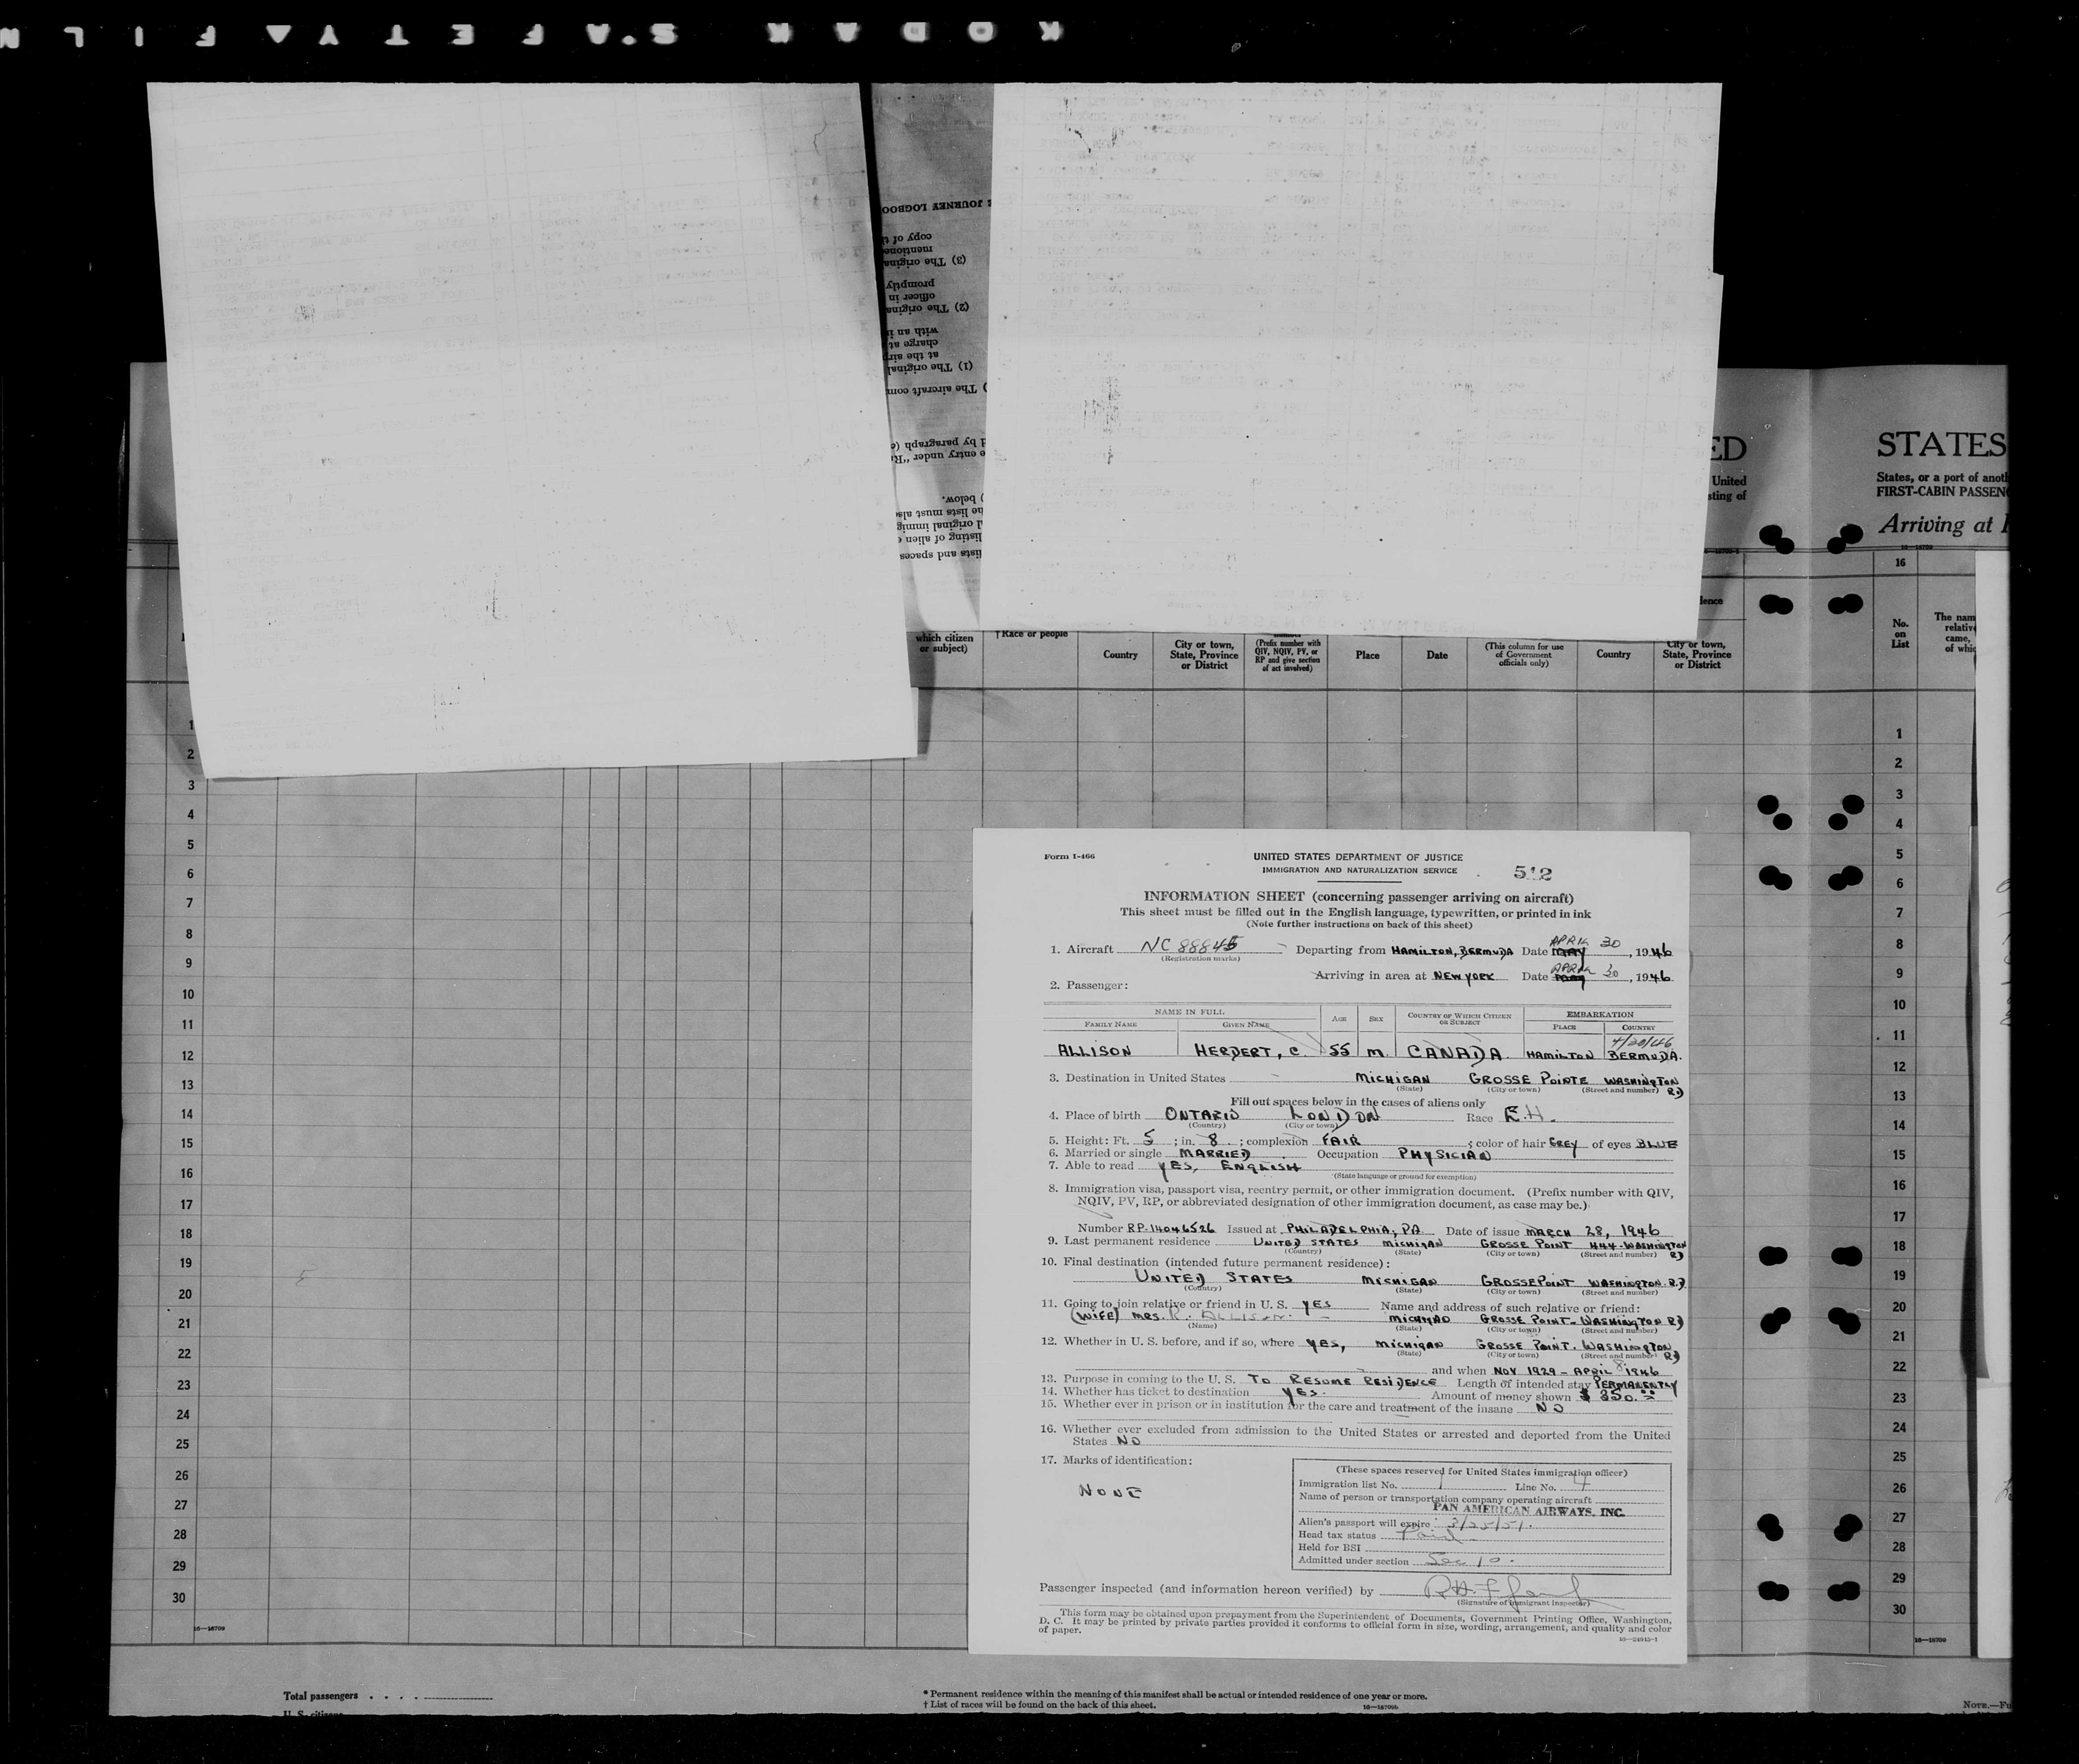 KODAK SAFETY FILM
JOURNEY LOGBOO
copy of t
mentione
(3) The origina
promptly
officer in
(2) The origina
with an i
charge at
at the air
(1) The original
The aircraft com
d by paragraph (
e entry under "R
) below.
he lists must als
d original immig
listing of alien
lists and spaces
ED
United
sting of
STATES
States, or a port of anoth
FIRST-CABIN PASSEN
Arriving at
16—18709
16
lence
which citizen
or subject)
† Race or people
Country
City or town,
State, Province
or District
(Prefix number with
QIV, NQIV, PV, or
RP and give section
of act involved)
Place
Date
(This column for use
of Government
officials only)
Country
City or town,
State, Province
or District
No.
on
List
The nam
relativ
came,
of whic
1
2
3
4
5
6
7
8
9
10
11
12
13
14
15
16
17
18
19
20
21
22
23
24
25
26
27
28
29
30
16—18709
1
2
3
4
5
6
7
8
9
10
11
12
13
14
15
16
17
18
19
20
21
22
23
24
25
26
27
28
29
30
16—18709
Form I-466
UNITED STATES DEPARTMENT OF JUSTICE
IMMIGRATION AND NATURALIZATION SERVICE
512
INFORMATION SHEET (concerning passenger arriving on aircraft)
This sheet must be filled out in the English language, typewritten, or printed in ink
(Note further instructions on back of this sheet)
1. Aircraft NC 88845 Departing from HAMILTON, BERMUDA Date MAY APRIL 30, 1946
(Registration marks)
Arriving in area at NEW YORK Date APRIL 30, 1946
2. Passenger:
NAME IN FULL AGE SEX COUNTRY OF WHICH CITIZEN OR SUBJECT EMBARKATION
FAMILY NAME GIVEN NAME PLACE COUNTRY
4/30/46
ALLISON HERBERT, C. 55 M. CANADA HAMILTON BERMUDA.
3. Destination in United States MICHIGAN GROSSE POINTE WASHINGTON RD
(State) (City or town) (Street and number)
Fill out spaces below in the cases of aliens only
4. Place of birth ONTARIO LONDON Race E.H.
(Country) (City or town)
5. Height: Ft. 5; in. 8; complexion FAIR; color of hair GREY of eyes BLUE
6. Married or single MARRIED Occupation PHYSICIAN
7. Able to read YES, ENGLISH
(State language or ground for exemption)
8. Immigration visa, passport visa, reentry permit, or other immigration document. (Prefix number with QIV,
NQIV, PV, RP, or abbreviated designation of other immigration document, as case may be.)
Number RP-14046526 Issued at PHILADELPHIA, PA. Date of issue MARCH 28, 1946
9. Last permanent residence UNITED STATES MICHIGAN GROSSE POINT 444-WASHINGTON RD
(Country) (State) (City or town) (Street and number)
10. Final destination (intended future permanent residence):
UNITED STATES MICHIGAN GROSSE POINT WASHINGTON. RD.
(Country) (State) (City or town) (Street and number)
11. Going to join relative or friend in U. S. YES Name and address of such relative or friend:
(WIFE) MRS. R. ALLISON. MICHIGAN GROSSE POINT-WASHINGTON RD
(Name) (State) (City or town) (Street and number)
12. Whether in U. S. before, and if so, where YES, MICHIGAN GROSSE POINT. WASHINGTON RD
(State) (City or town) (Street and number)
and when NOV 1929 - APRIL 8 1946
13. Purpose in coming to the U. S. TO RESUME RESIDENCE Length of intended stay PERMANENTLY
14. Whether has ticket to destination YES. Amount of money shown $ 350.00
15. Whether ever in prison or in institution for the care and treatment of the insane NO
16. Whether ever excluded from admission to the United States or arrested and deported from the United
States NO
17. Marks of identification:
NONE
(These spaces reserved for United States immigration officer)
Immigration list No. 1 Line No. 4
Name of person or transportation company operating aircraft
PAN AMERICAN AIRWAYS, INC.
Alien's passport will expire 3/25/51.
Head tax status Paid
Held for BSI
Admitted under section Sec 10.
Passenger inspected (and information hereon verified) by
(Signature of immigrant inspector)
This form may be obtained upon prepayment from the Superintendent of Documents, Government Printing Office, Washington,
D. C. It may be printed by private parties provided it conforms to official form in size, wording, arrangement, and quality and color
of paper.
16—24915-1
Total passengers . . . .
U. S. citizens
* Permanent residence within the meaning of this manifest shall be actual or intended residence of one year or more.
† List of races will be found on the back of this sheet.
16—18709b
NOTE.—Fu